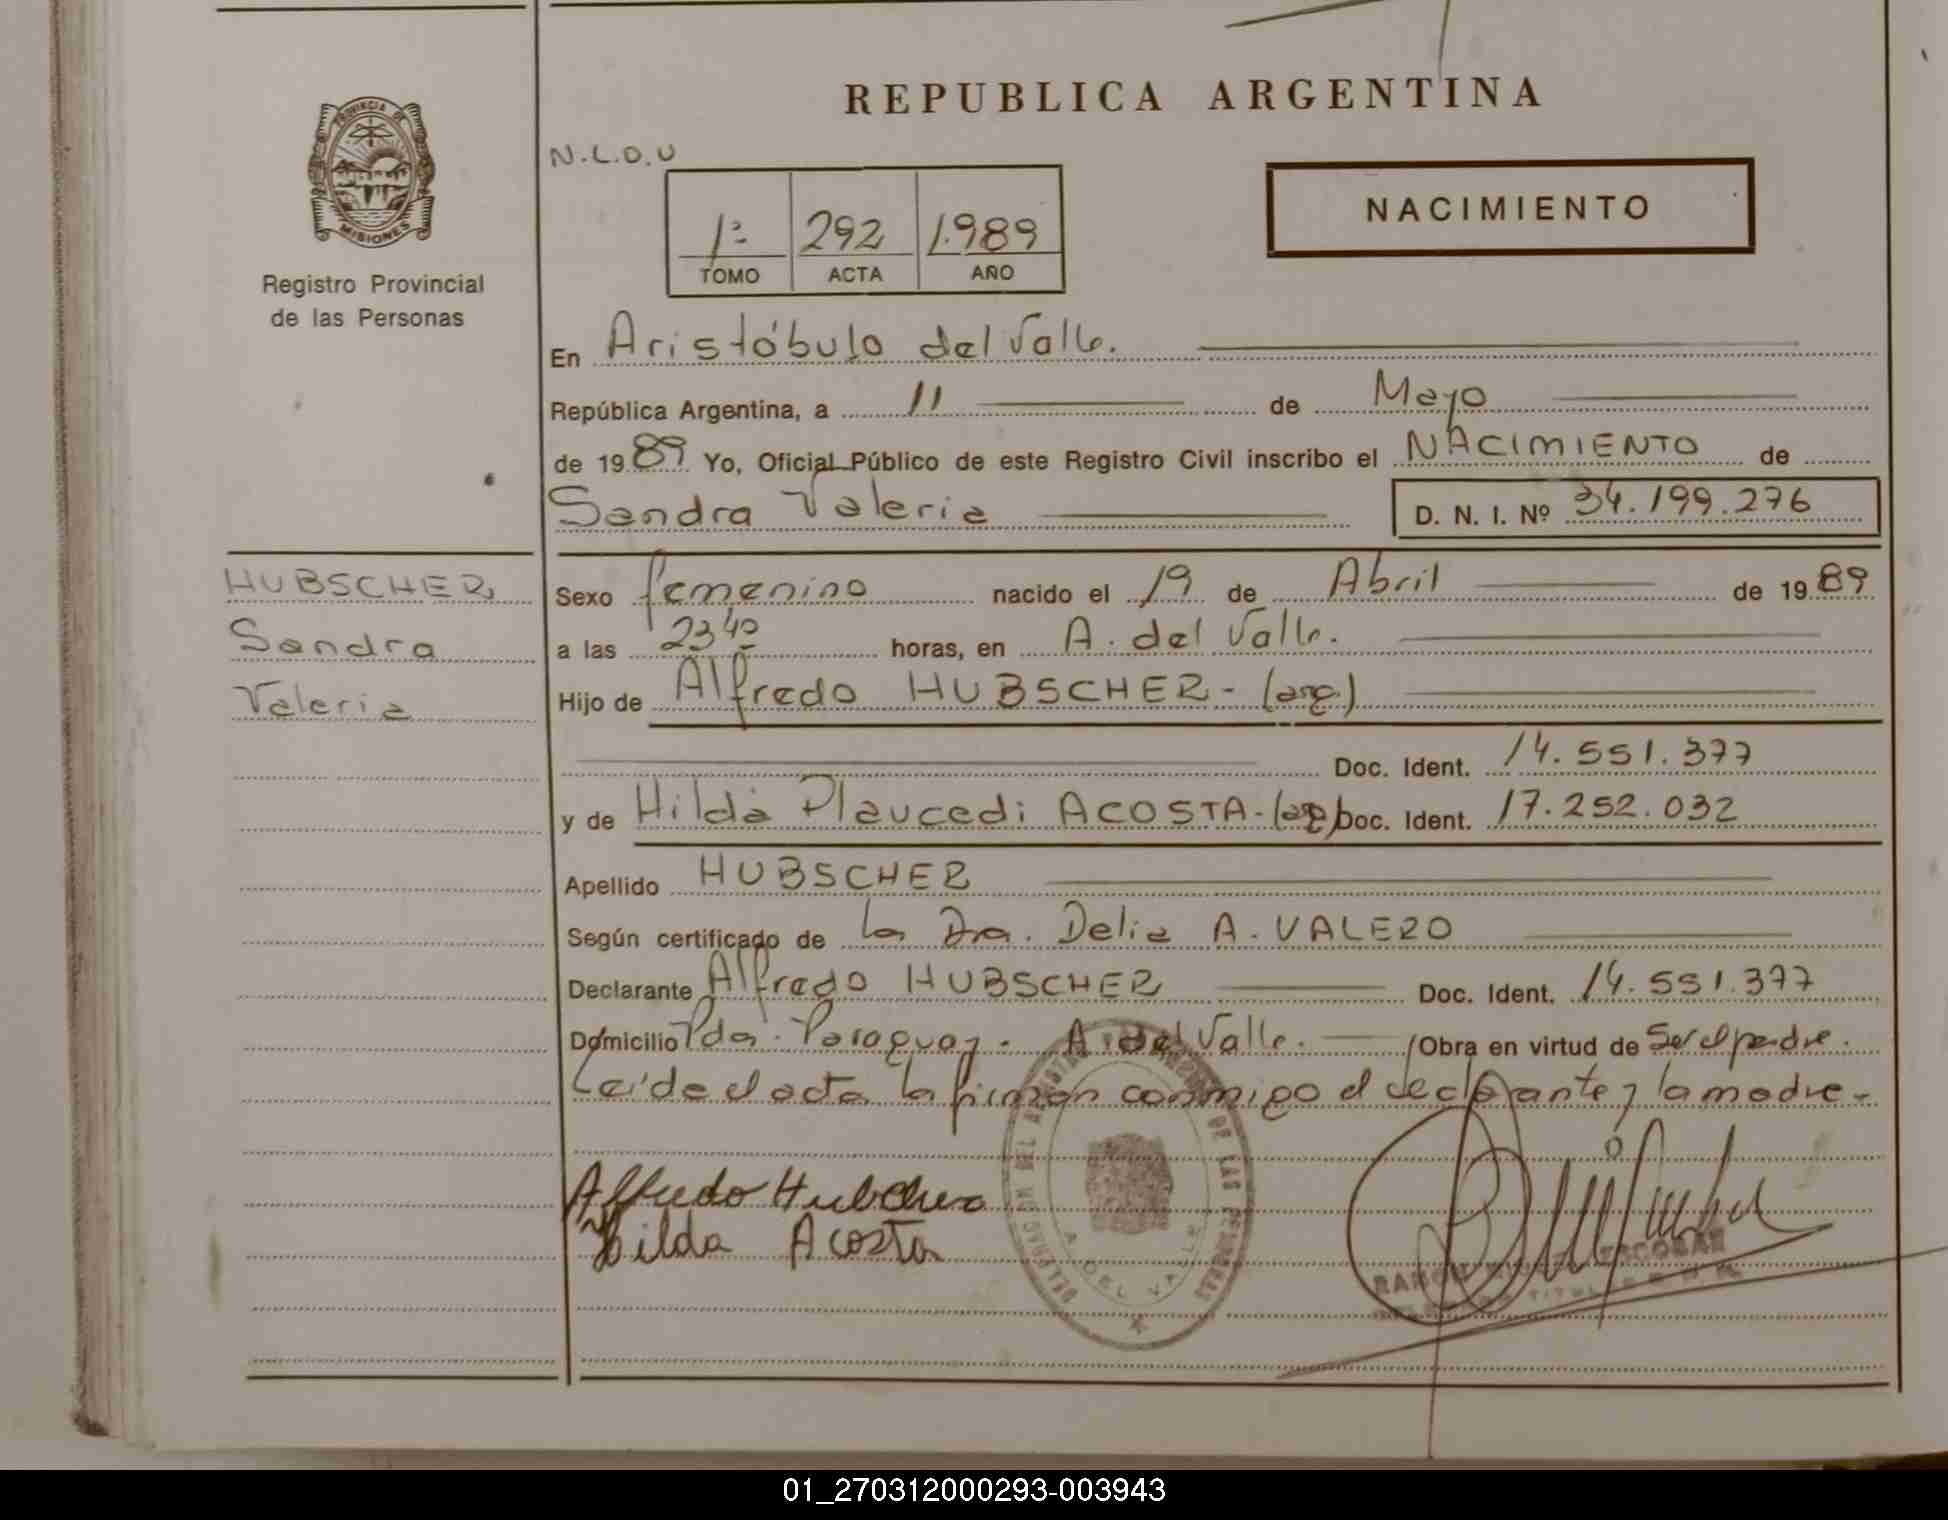 REPUBLICA ARGENTINA
PROVINCIA DE
MISIONES
Registro Provincial
de las Personas
N.L.D.U
1º 292 1.989
TOMO ACTA AÑO
NACIMIENTO
En Aristóbulo del Valle.
República Argentina, a 11 de Mayo
de 1989 Yo, Oficial Público de este Registro Civil inscribo el NACIMIENTO de
Sandra Valeria D. N. I. Nº 34.199.276
HUBSCHER
Sandra
Valeria
Sexo femenino nacido el 19 de Abril de 1989
a las 23 40 horas, en A. del Valle.
Hijo de Alfredo HUBSCHER - (arg.)
Doc. Ident. 14.551.377
y de Hilda Plaucedi ACOSTA - (arg) Doc. Ident. 17.252.032
Apellido HUBSCHER
Según certificado de la Dra. Delia A. VALERO
Declarante Alfredo HUBSCHER Doc. Ident. 14.551.377
Domicilio Pda. Paraguay. A. del Valle. /Obra en virtud de Ser el padre.
Leída el acta la firman conmigo el declarante y la madre.-
Alfredo Hubcher
Hilda Acosta
DE LAS PERSONAS
A. DEL VALLE
RAMON ESCOBAR
TITULAR
01_270312000293-003943